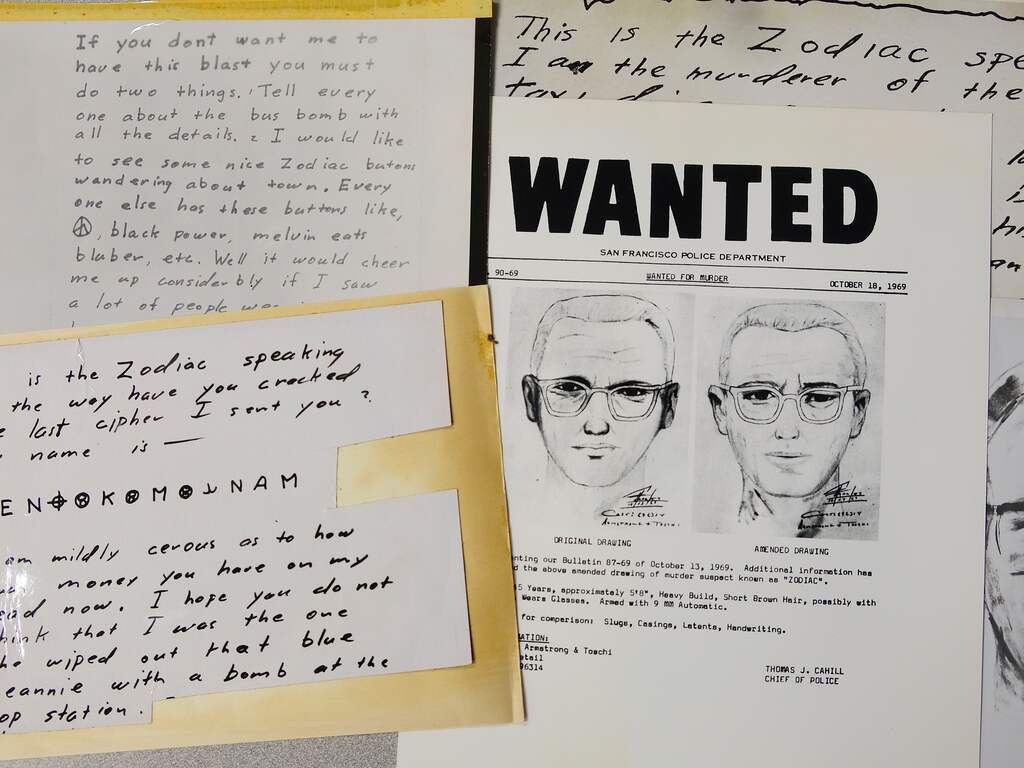 If you dont want me to
have this blast you must
do two things. Tell every
one about the bus bomb with
all the details. 2 I would like
to see some nice Zodiac butons
wandering about town. Every
one else has these buttons like,
☮, black power, melvin eats
bluber, etc. Well it would cheer
me up considerbly if I saw
a lot of people
is the Zodiac speaking
the way have you cracked
last cipher I sent you?
name is —
E N ⌖ ⊗ K ⊗ M ⊗ ⅃ N A M
am mildly cerous as to how
money you have on my
now. I hope you do not
think that I was the one
wiped out that blue
meannie with a bomb at the
station.
This is the Zodiac
I am the murderer of the
WANTED
SAN FRANCISCO POLICE DEPARTMENT
90-69 WANTED FOR MURDER OCTOBER 18, 1969
ORIGINAL DRAWING AMENDED DRAWING
our Bulletin 87-69 of October 13, 1969. Additional information has
the above amended drawing of murder suspect known as "ZODIAC".
Years, approximately 5'8", Heavy Build, Short Brown Hair, possibly with
Wears Glasses. Armed with 9 MM Automatic.
for comparison: Slugs, Casings, Latents, Handwriting.
Armstrong & Toschi
96314
THOMAS J. CAHILL
CHIEF OF POLICE